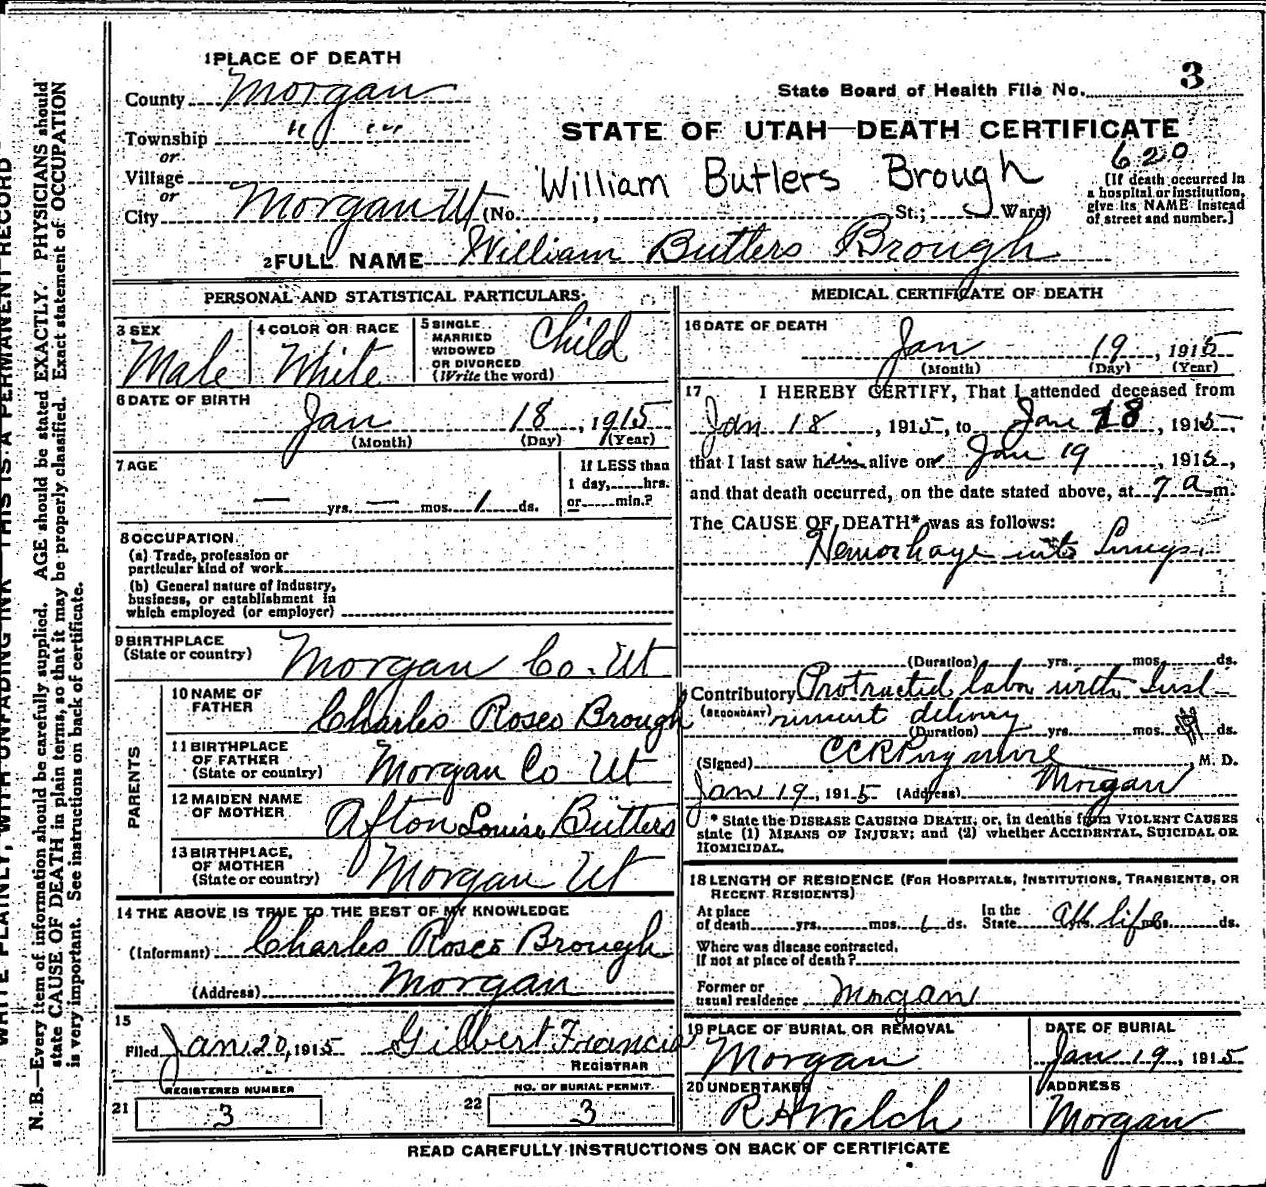 1 PLACE OF DEATH
County Morgan
State Board of Health File No. 3
Township " "
or
STATE OF UTAH—DEATH CERTIFICATE
620
Village
or
William Butlers Brough
[If death occurred in a hospital or institution, give its NAME instead of street and number.]
City Morgan Ut (No. , St.; Ward)
2 FULL NAME William Butters Brough
PERSONAL AND STATISTICAL PARTICULARS
3 SEX
Male
4 COLOR OR RACE
White
5 SINGLE
MARRIED
WIDOWED
OR DIVORCED
(Write the word)
Child
6 DATE OF BIRTH
Jan 18, 1915
(Month) (Day) (Year)
7 AGE
— yrs. — mos. 1 ds.
If LESS than
1 day, hrs.
or min.?
8 OCCUPATION
(a) Trade, profession or
particular kind of work
(b) General nature of industry,
business, or establishment in
which employed (or employer)
9 BIRTHPLACE
(State or country) Morgan Co. Ut
PARENTS
10 NAME OF
FATHER Charles Rosco Brough
11 BIRTHPLACE
OF FATHER
(State or country) Morgan Co Ut
12 MAIDEN NAME
OF MOTHER Afton Louise Butters
13 BIRTHPLACE,
OF MOTHER
(State or country) Morgan Ut
14 THE ABOVE IS TRUE TO THE BEST OF MY KNOWLEDGE
(Informant) Charles Rosco Brough
(Address) Morgan
15
Filed Jan 20, 1915 Gilbert Francis
REGISTRAR
REGISTERED NUMBER
21 3
NO. OF BURIAL PERMIT.
22 3
MEDICAL CERTIFICATE OF DEATH
16 DATE OF DEATH
Jan 19, 1915
(Month) (Day) (Year)
17 I HEREBY CERTIFY, That I attended deceased from
Jan 18, 1915, to Jan 18, 1915,
that I last saw him alive on Jan 19, 1915,
and that death occurred, on the date stated above, at 7 a m.
The CAUSE OF DEATH* was as follows:
Hemorhage into Lungs.
(Duration) yrs. mos. ds.
Contributory Protracted labor with Inst
(SECONDARY) rument delivery
(Duration) yrs. mos. ds.
(Signed) M. D.
Jan 19, 1915 (Address) Morgan
* State the DISEASE CAUSING DEATH; or, in deaths from VIOLENT CAUSES
state (1) MEANS OF INJURY; and (2) whether ACCIDENTAL, SUICIDAL OR
HOMICIDAL.
18 LENGTH OF RESIDENCE (FOR HOSPITALS, INSTITUTIONS, TRANSIENTS, OR
RECENT RESIDENTS)
At place
of death yrs. mos. 1 ds. In the
State all life ds.
Where was disease contracted.
If not at place of death?
Former or
usual residence Morgan
19 PLACE OF BURIAL OR REMOVAL
Morgan
DATE OF BURIAL
Jan 19, 1915
20 UNDERTAKER
R H Welch
ADDRESS
Morgan
READ CAREFULLY INSTRUCTIONS ON BACK OF CERTIFICATE
WRITE PLAINLY, WITH UNFADING INK—THIS IS A PERMANENT RECORD
N. B.—Every item of information should be carefully supplied. AGE should be stated EXACTLY. PHYSICIANS should
state CAUSE OF DEATH in plain terms, so that it may be properly classified. Exact statement of OCCUPATION
is very important. See instructions on back of certificate.